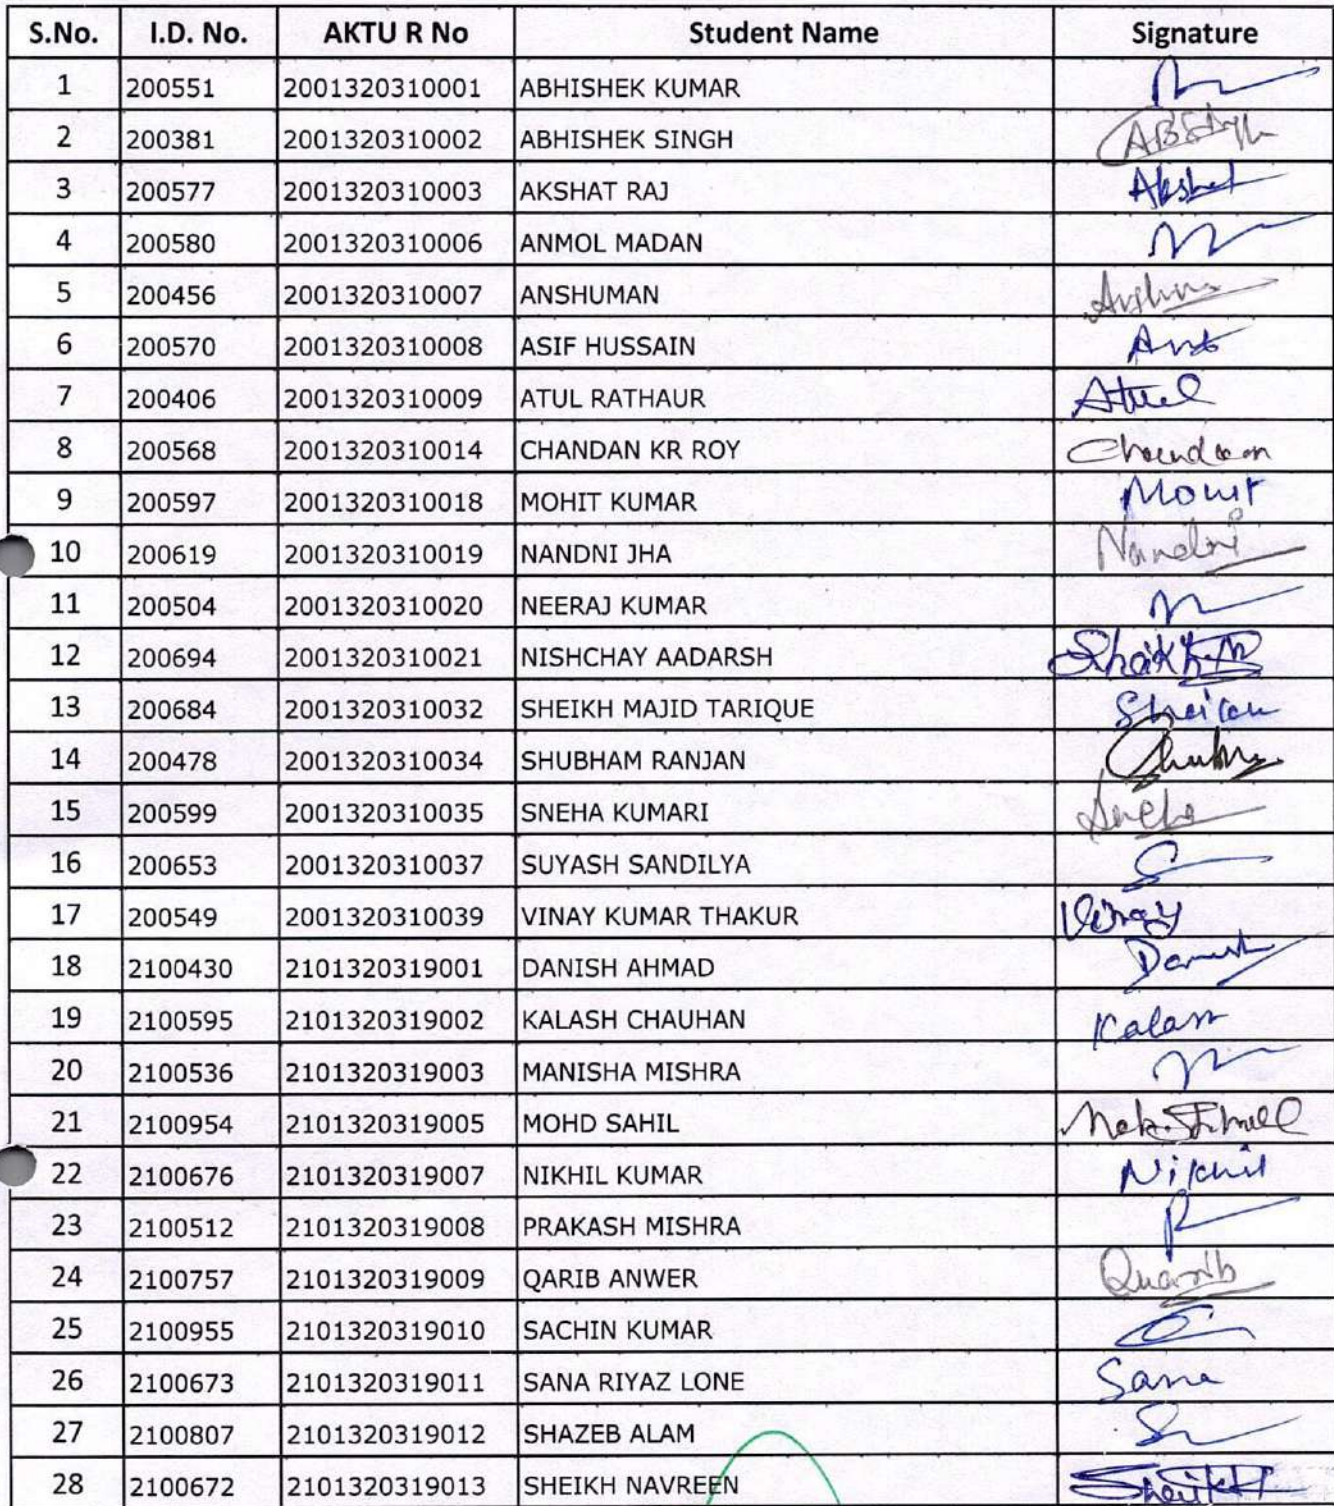 S.No. I.D. No. AKTU R No Student Name Signature
1 200551 2001320310001 ABHISHEK KUMAR
2 200381 2001320310002 ABHISHEK SINGH ABSingh
3 200577 2001320310003 AKSHAT RAJ Akshat
4 200580 2001320310006 ANMOL MADAN
5 200456 2001320310007 ANSHUMAN
6 200570 2001320310008 ASIF HUSSAIN
7 200406 2001320310009 ATUL RATHAUR Atul
8 200568 2001320310014 CHANDAN KR ROY Chandan
9 200597 2001320310018 MOHIT KUMAR Mohit
10 200619 2001320310019 NANDNI JHA Nandni
11 200504 2001320310020 NEERAJ KUMAR
12 200694 2001320310021 NISHCHAY AADARSH
13 200684 2001320310032 SHEIKH MAJID TARIQUE
14 200478 2001320310034 SHUBHAM RANJAN
15 200599 2001320310035 SNEHA KUMARI Sneha
16 200653 2001320310037 SUYASH SANDILYA
17 200549 2001320310039 VINAY KUMAR THAKUR Vinay
18 2100430 2101320319001 DANISH AHMAD Danish
19 2100595 2101320319002 KALASH CHAUHAN Kalash
20 2100536 2101320319003 MANISHA MISHRA
21 2100954 2101320319005 MOHD SAHIL
22 2100676 2101320319007 NIKHIL KUMAR Nikhil
23 2100512 2101320319008 PRAKASH MISHRA
24 2100757 2101320319009 QARIB ANWER Quarib
25 2100955 2101320319010 SACHIN KUMAR
26 2100673 2101320319011 SANA RIYAZ LONE Sana
27 2100807 2101320319012 SHAZEB ALAM
28 2100672 2101320319013 SHEIKH NAVREEN Sheikh